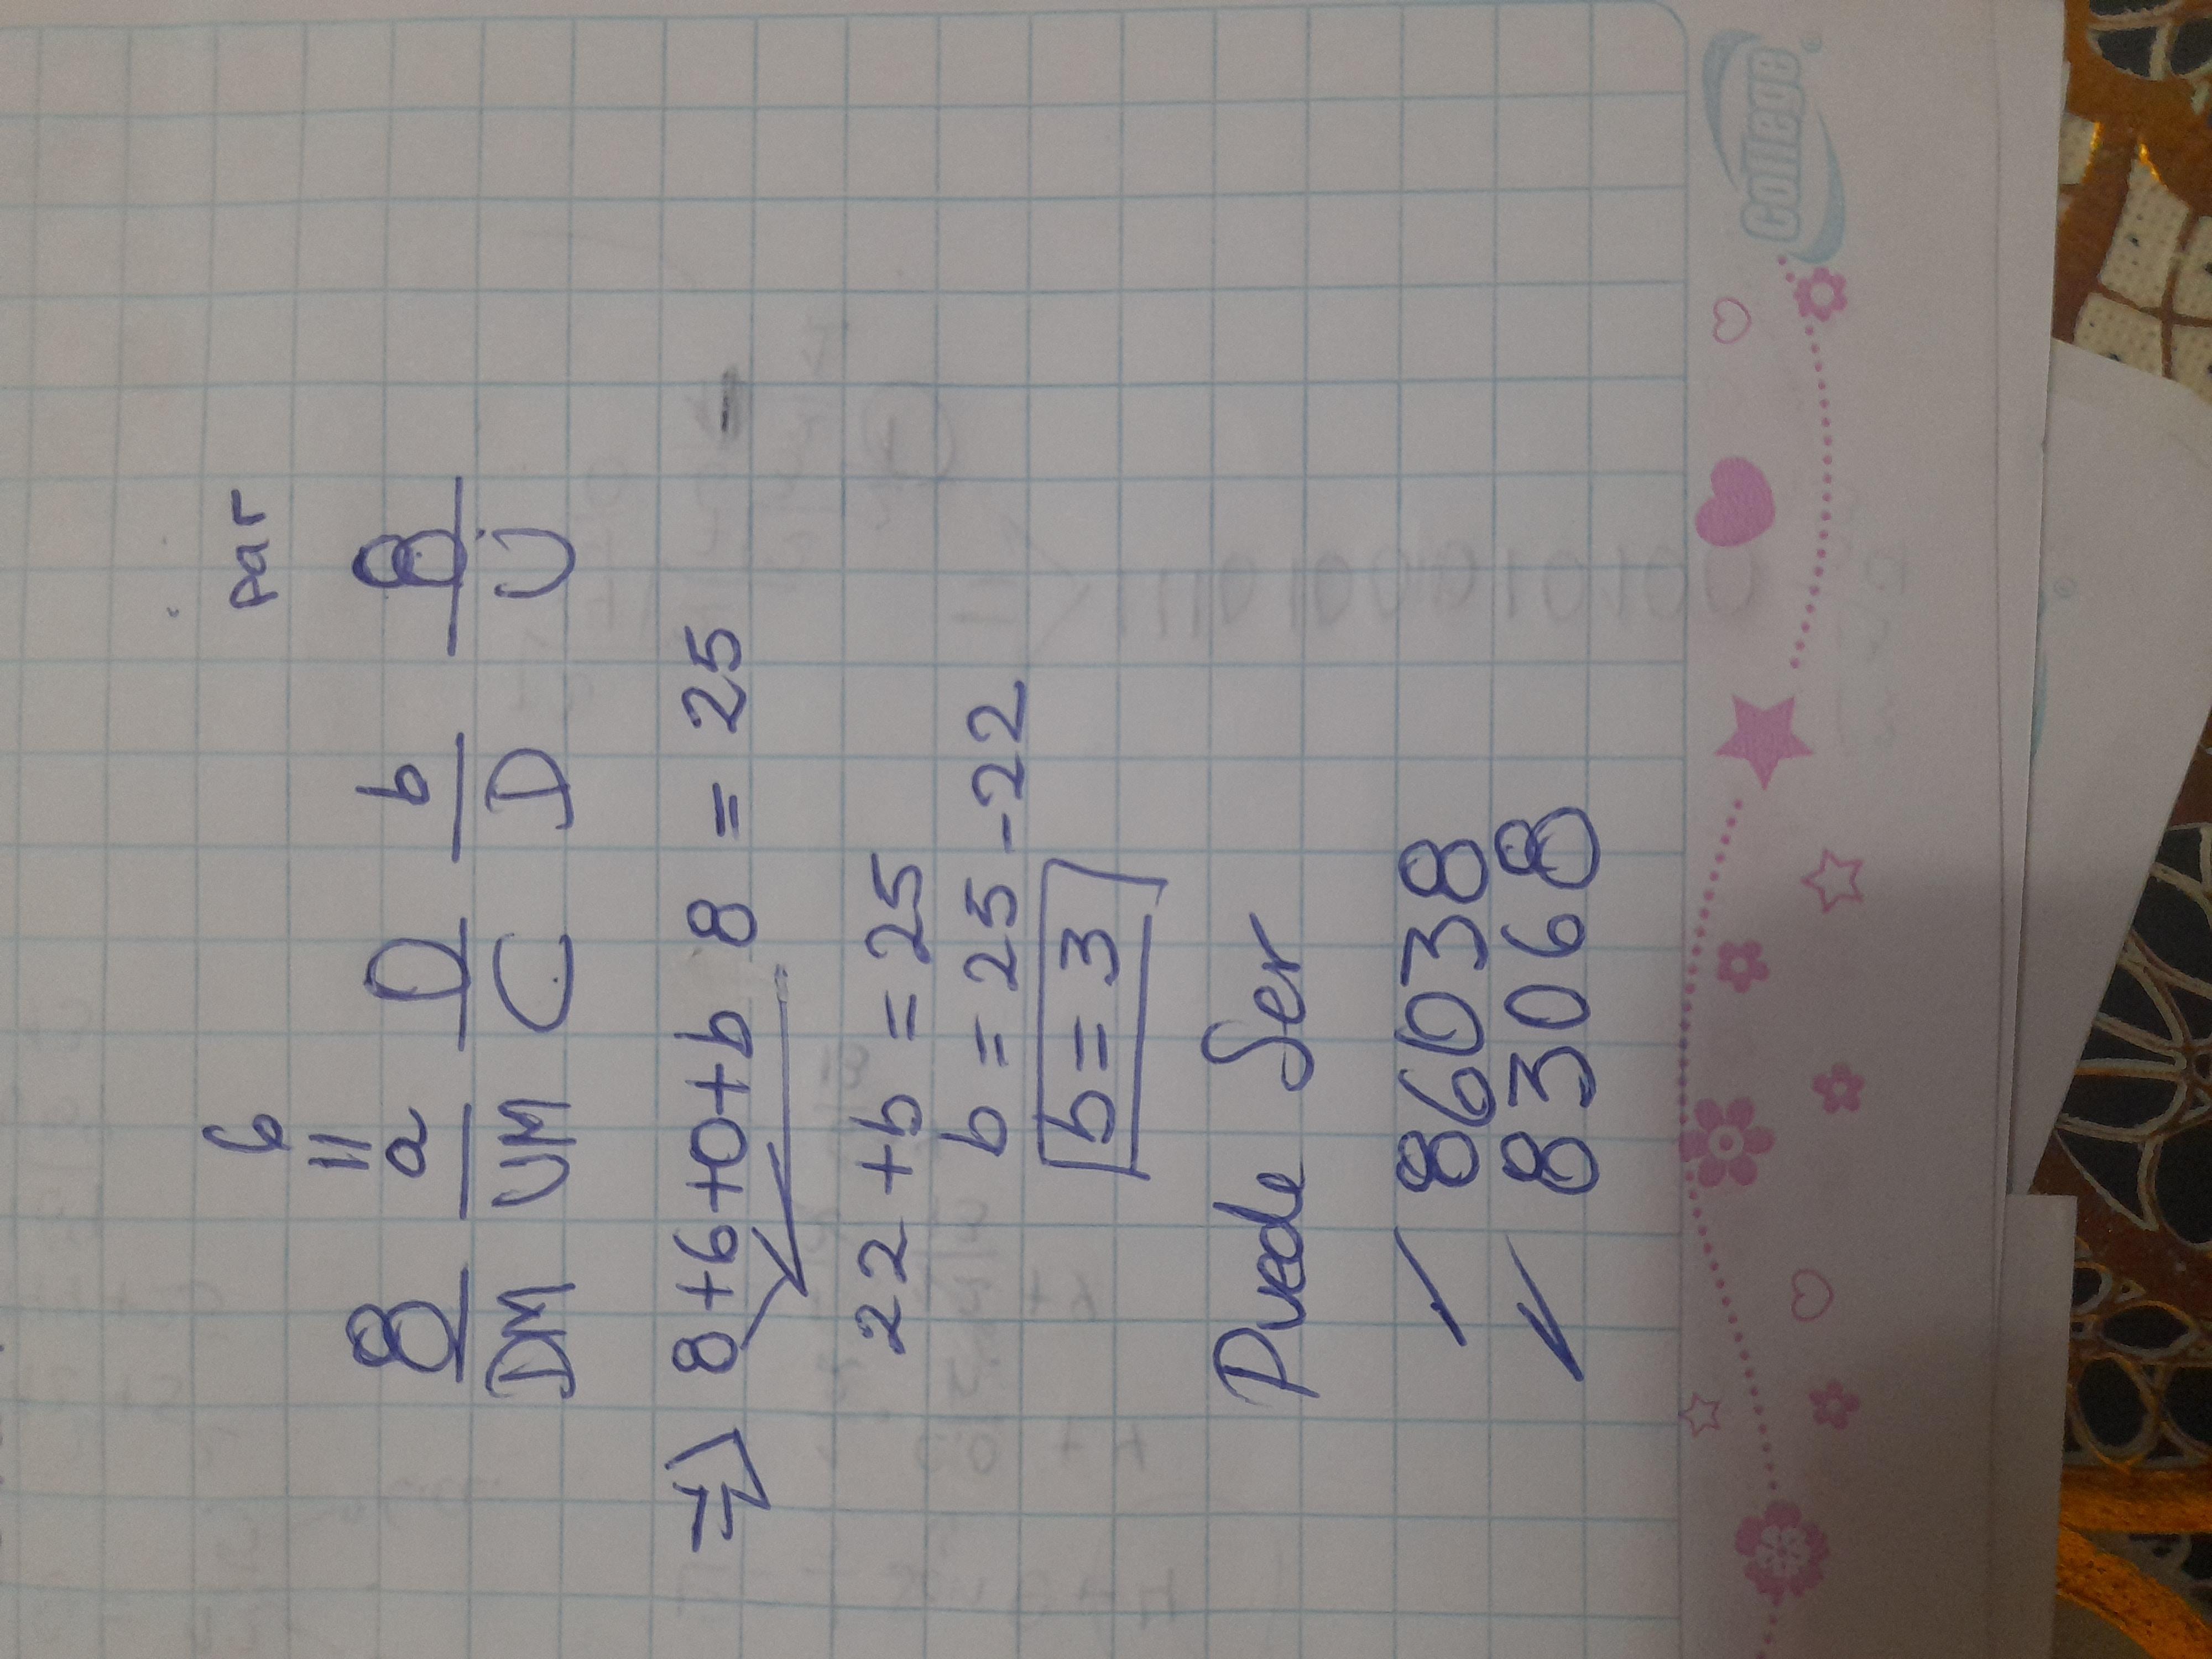 6 par
=
8 a 0 b 8
DM UM C D U
⇒ 8+6+0+b 8 = 25
22 + b = 25
b = 25 - 22
b = 3
Puede Ser
86038
83068
College